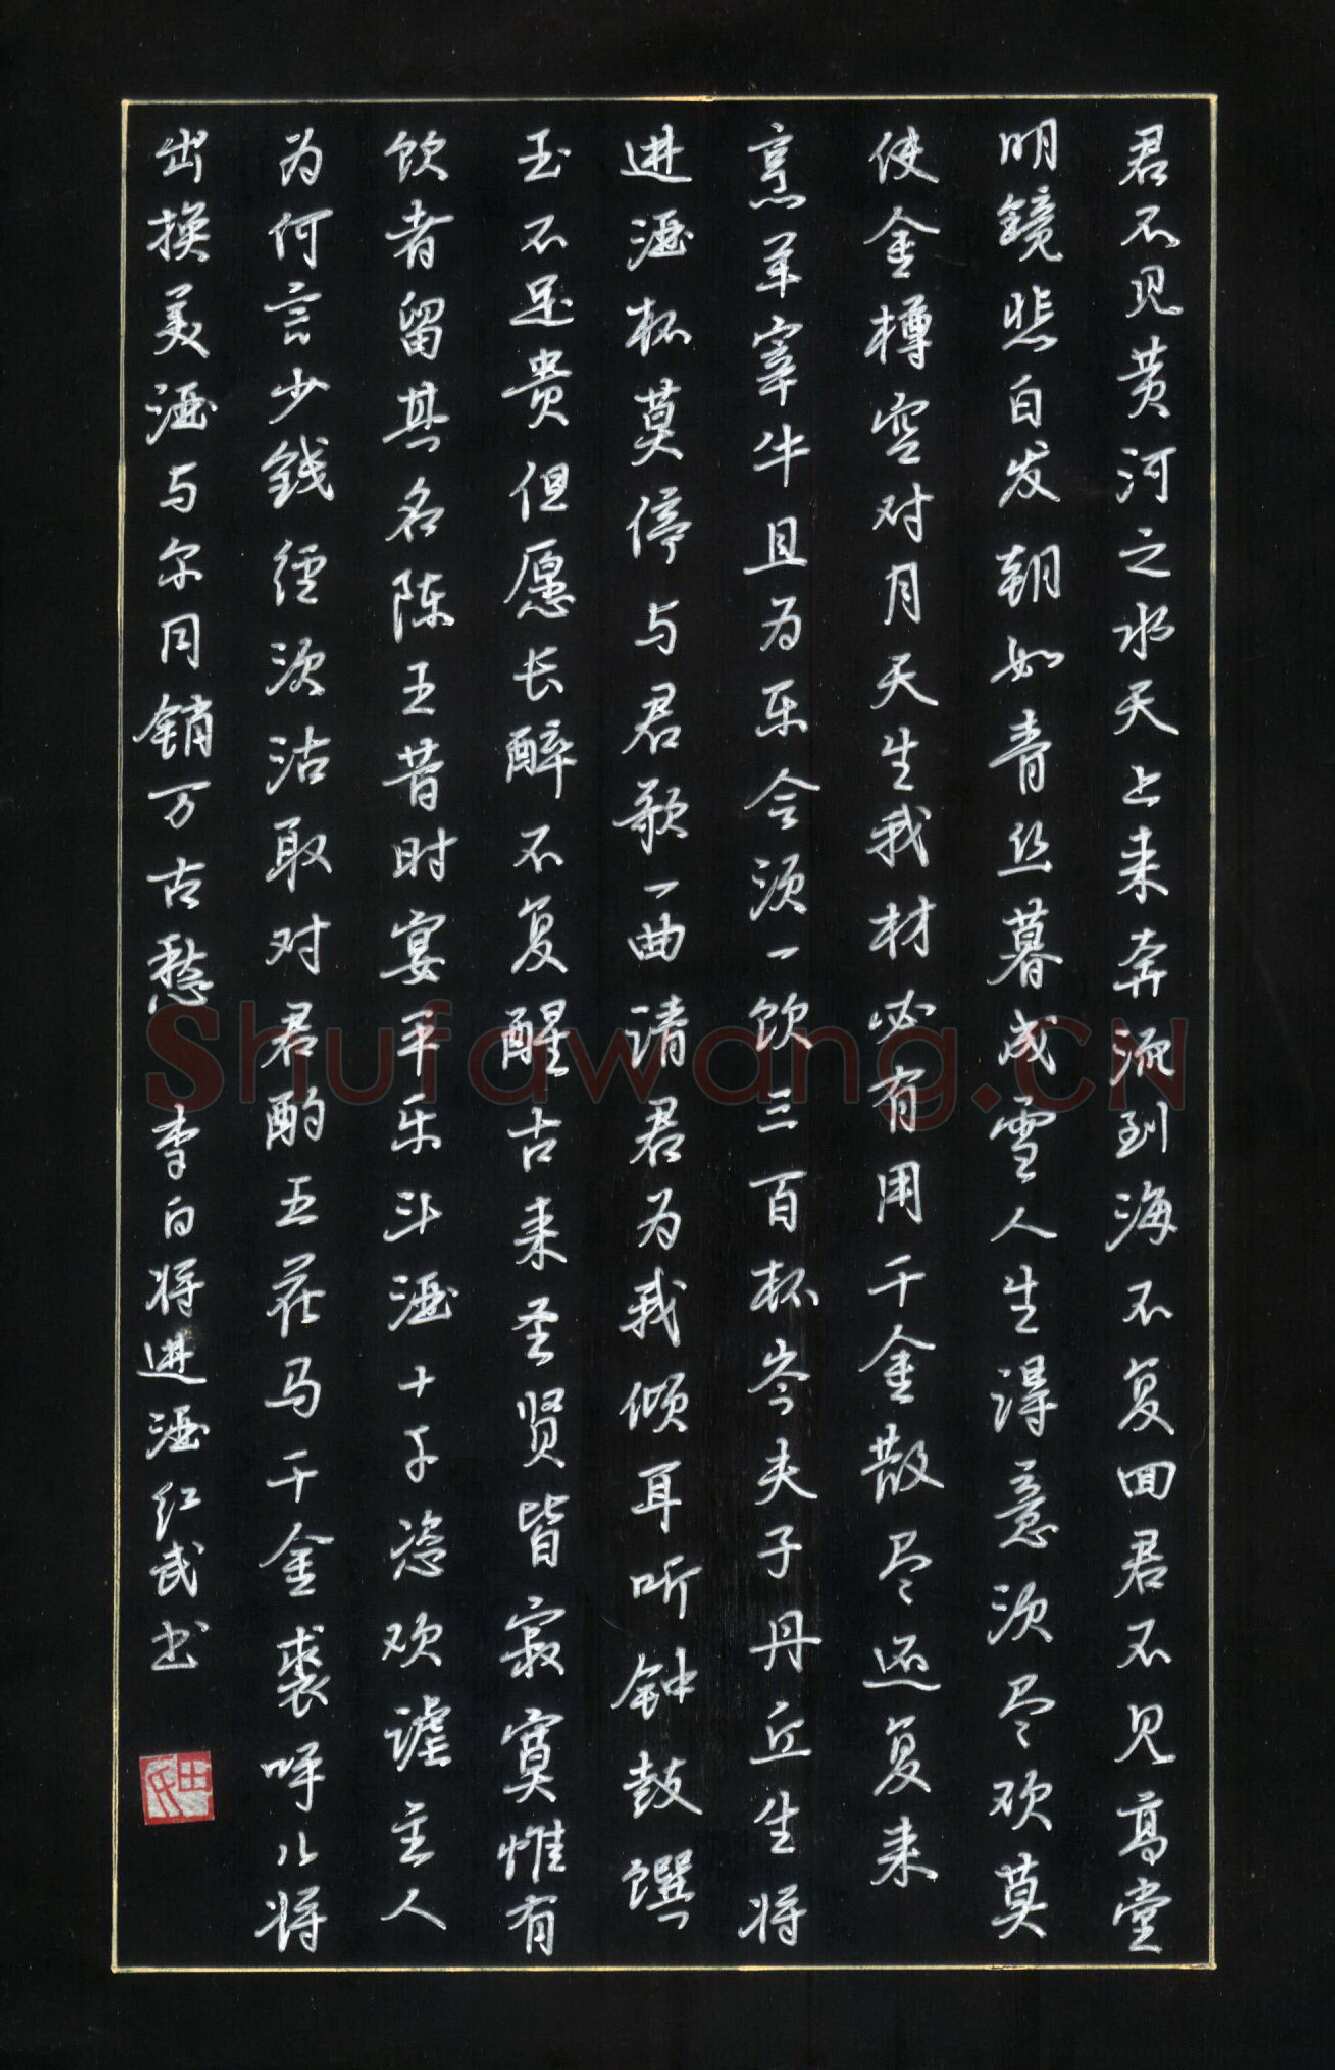 君不见黄河之水天上来奔流到海不复回君不见高堂
明镜悲白发朝如青丝暮成雪人生得意须尽欢莫
使金樽空对月天生我材必有用千金散尽还复来
烹羊宰牛且为乐会须一饮三百杯岑夫子丹丘生将
进酒杯莫停与君歌一曲请君为我倾耳听钟鼓馔
玉不足贵但愿长醉不复醒古来圣贤皆寂寞惟有
饮者留其名陈王昔时宴平乐斗酒十千恣欢谑主人
为何言少钱径须沽取对君酌五花马千金裘呼儿将
出换美酒与尔同销万古愁 李白将进酒红武书
田氏
Shufawang.CN